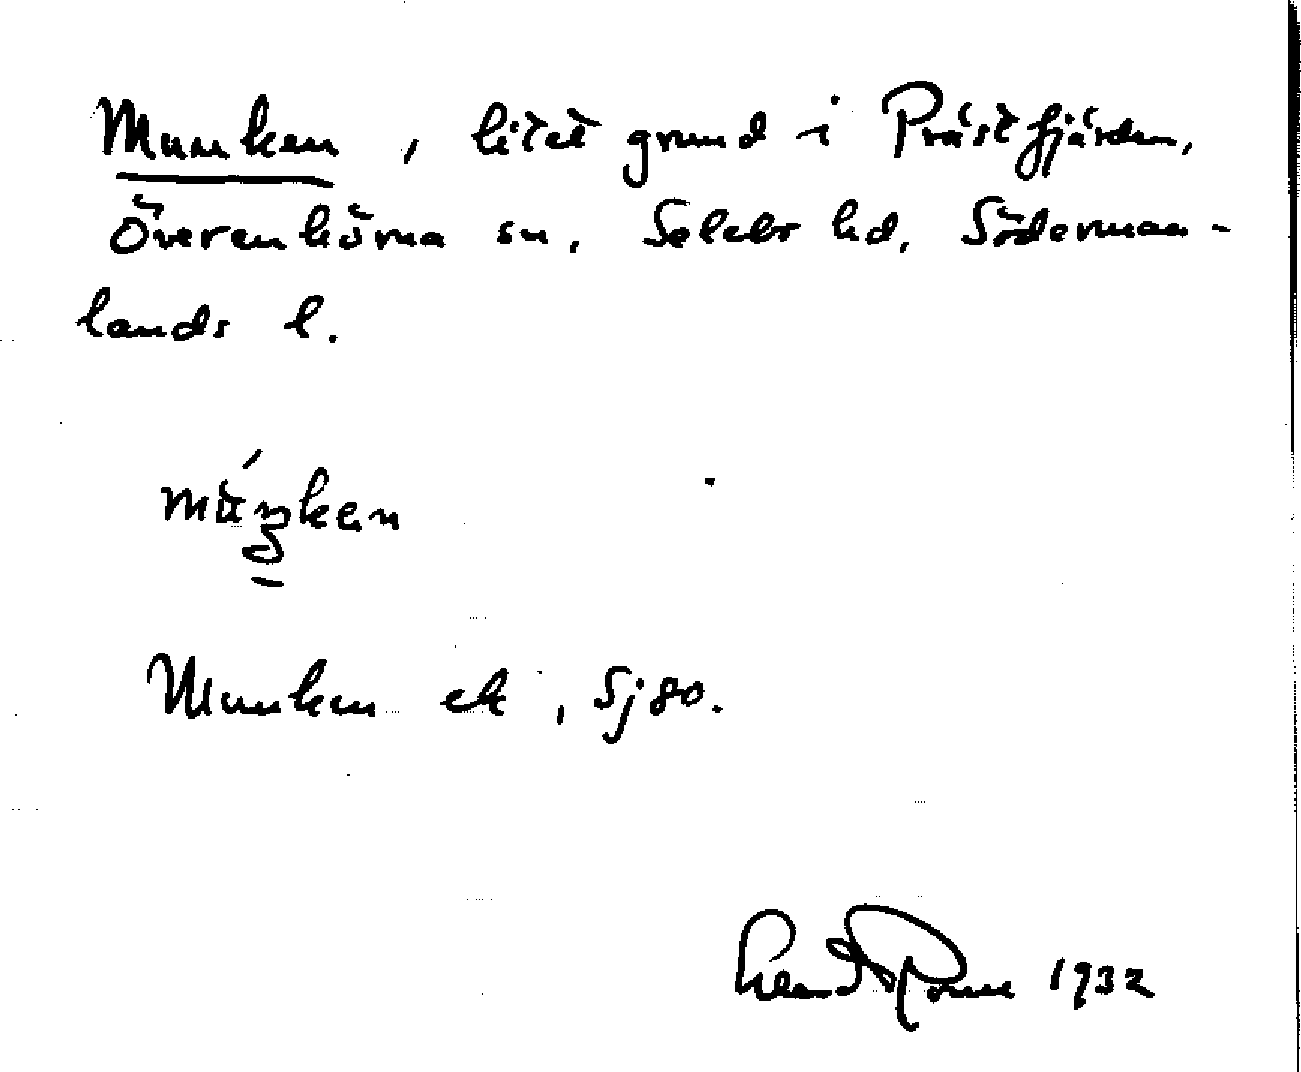 Munken, litet grund i Prästfjärden,
Överenhörna sn, Selebo hd, Söderman-
lands l.
Munken ek, Sj 80.
1932